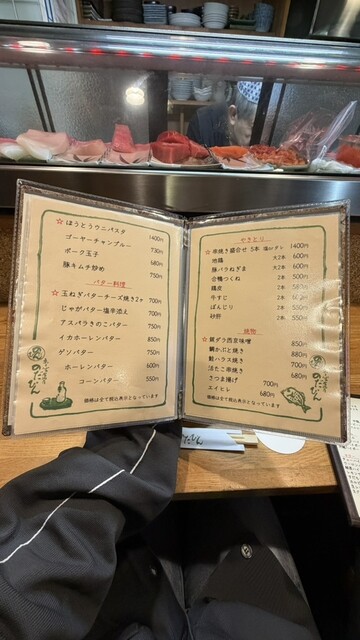 ☆ほうとうウニパスタ 1400円
ゴーヤーチャンプルー 730円
ポーク玉子 680円
豚キムチ炒め 750円
バター料理
☆玉ねぎバターチーズ焼き2ヶ 700円
じゃがバター塩辛添え 700円
アスパラきのこバター 750円
イカホーレンバター 850円
ゲソバター 750円
ホーレンバター 600円
コーンバター 550円
価格は全て税込表示となっています
のたびん
やきとり
☆串焼き盛合せ 5本 1400円
地鶏 大2本 600円
豚バラねぎま 大2本 600円
合鴨つくね 2本
鶏皮 2本
牛すじ 2本
ぼんじり 2本 550円
砂肝 2本 550円
焼物
☆銀ダラ西京味噌 850円
鯛かぶと焼き 880円
鮭ハラス焼き 730円
活たこ串焼き 700円
さつま揚げ 700円
エイヒレ 680円
価格は全て税込表示となっています
のたびん